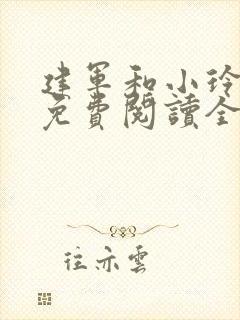 建軍和小玲
免費閱讀全
往亦雲